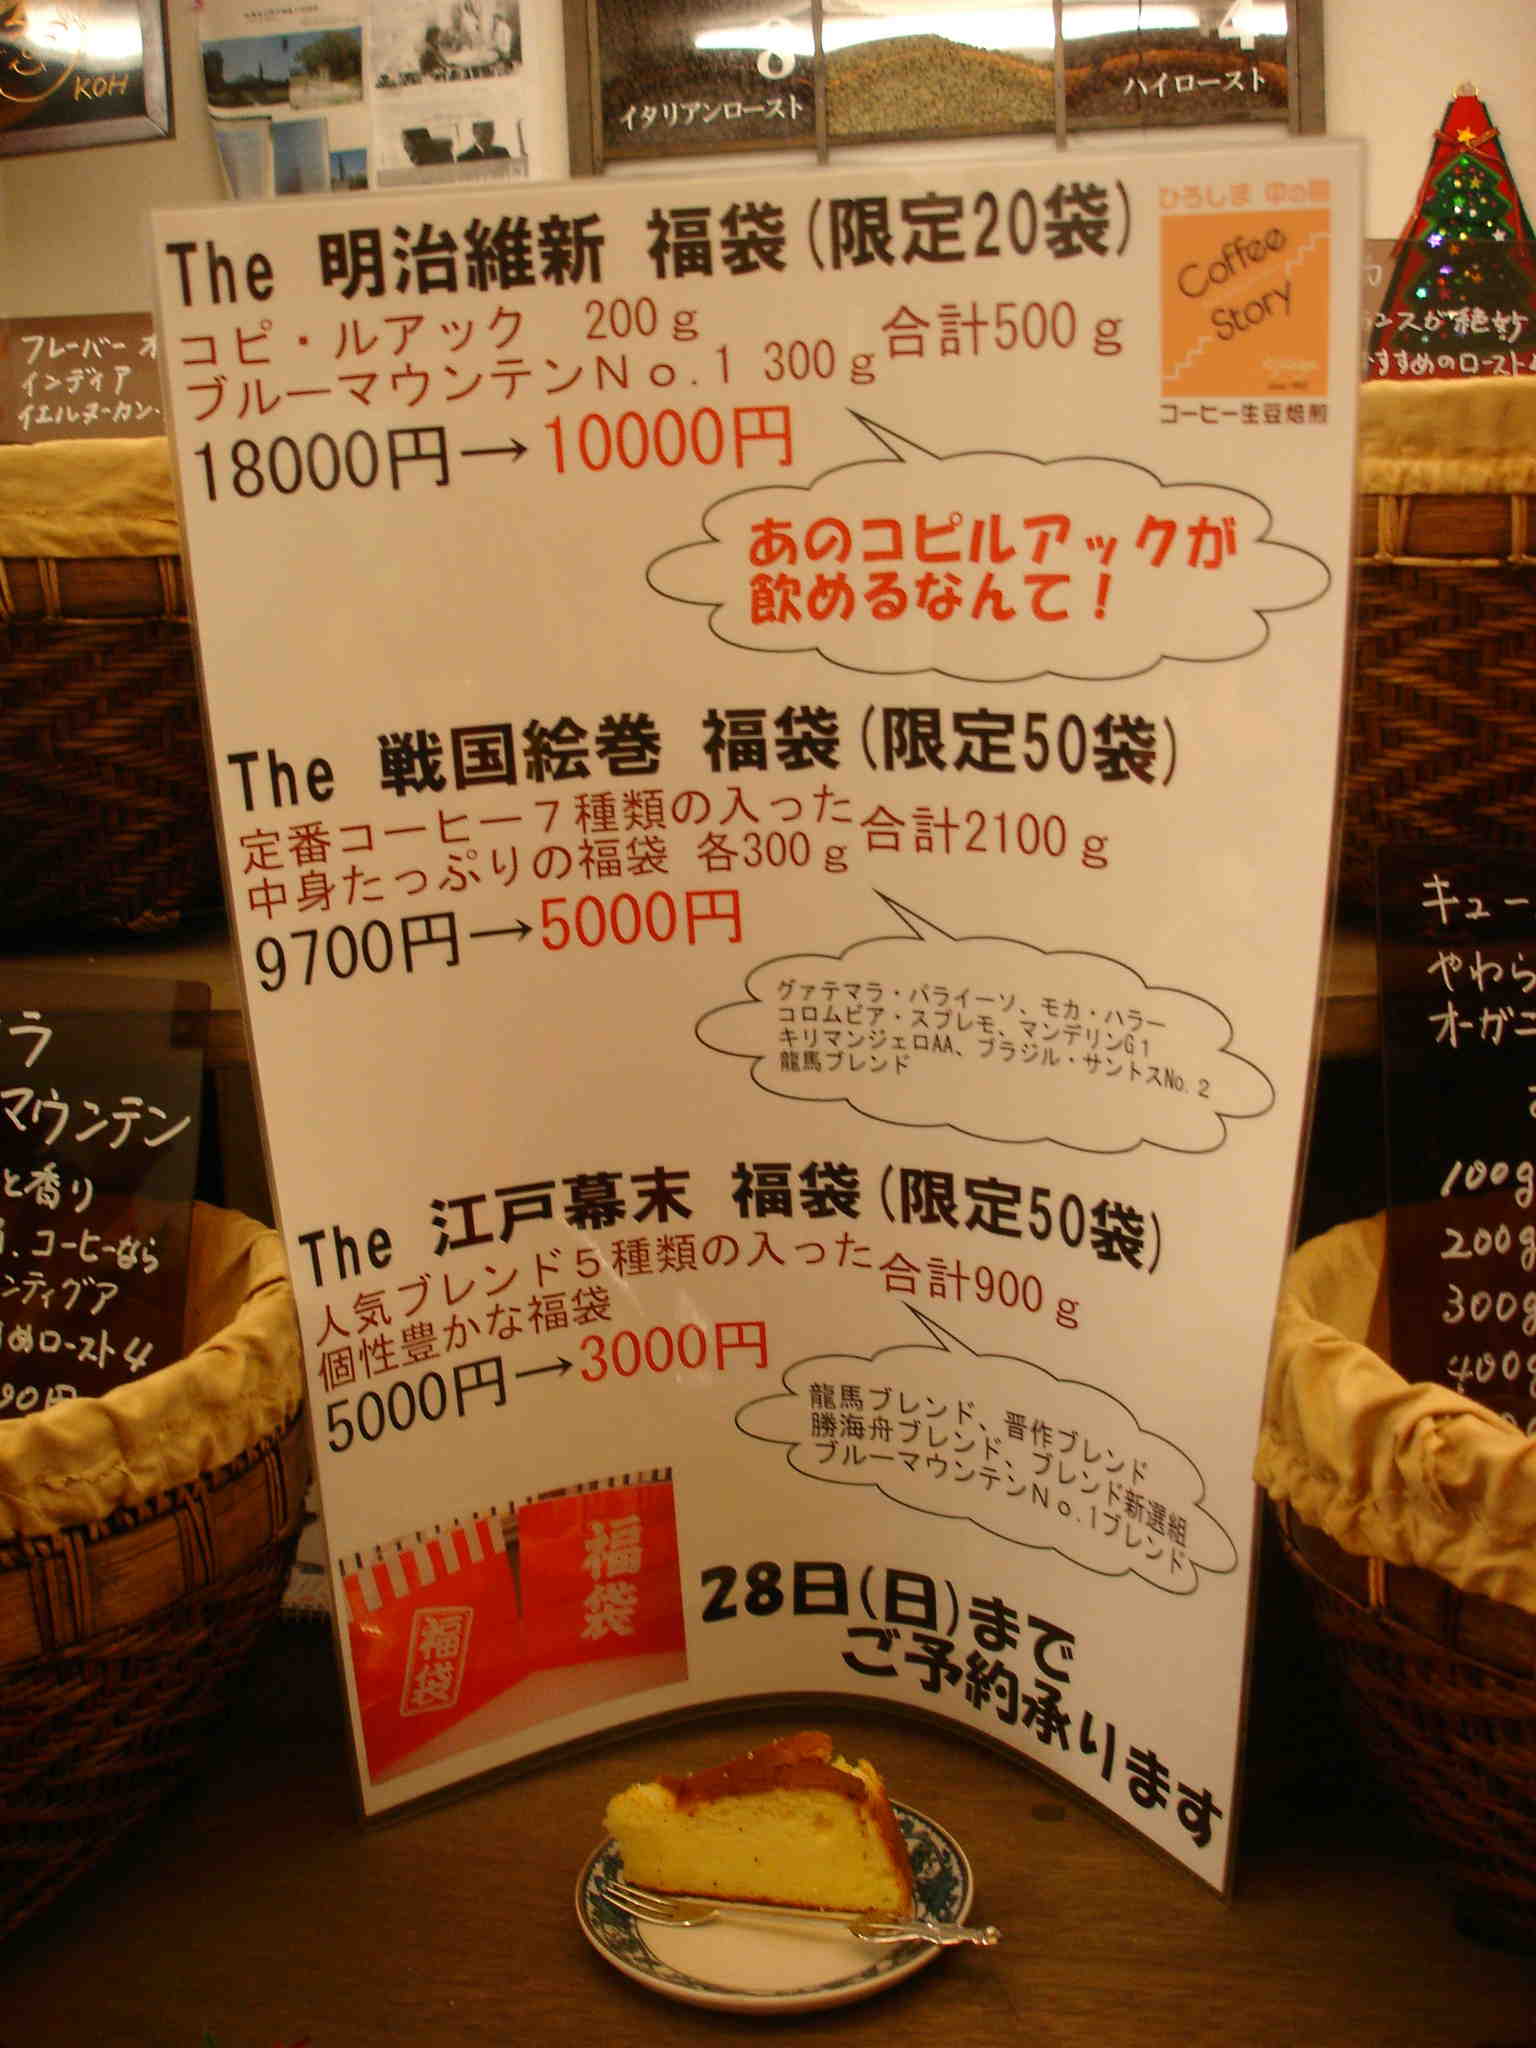 KOH
8
イタリアンロースト
4
ハイロースト
The 明治維新 福袋(限定20袋)
コピ・ルアック 200g
ブルーマウンテンNo.1 300g
合計500g
18000円→10000円
ひろしま 中の棚
Coffee
Story
コーヒー生豆焙煎
あのコピルアックが
飲めるなんて!
The 戦国絵巻 福袋(限定50袋)
定番コーヒー7種類の入った
中身たっぷりの福袋 各300g
合計2100g
9700円→5000円
グァテマラ・パライーソ、モカ・ハラー
コロムビア・スプレモ、マンデリンG1
キリマンジェロAA、ブラジル・サントスNo.2
龍馬ブレンド
The 江戸幕末 福袋(限定50袋)
人気ブレンド5種類の入った
個性豊かな福袋
合計900g
5000円→3000円
龍馬ブレンド、晋作ブレンド
勝海舟ブレンド、ブレンド新選組
ブルーマウンテンNo.1ブレンド
福袋
福袋
28日(日)まで
ご予約承ります
フレーバー
インディア
マウンテン
と香り
コーヒーなら
ンティグア
めロースト4
90円
ンスが絶妙
すすめのロースト
キュー
やわら
オーガニ
100g
200g
300g
400g